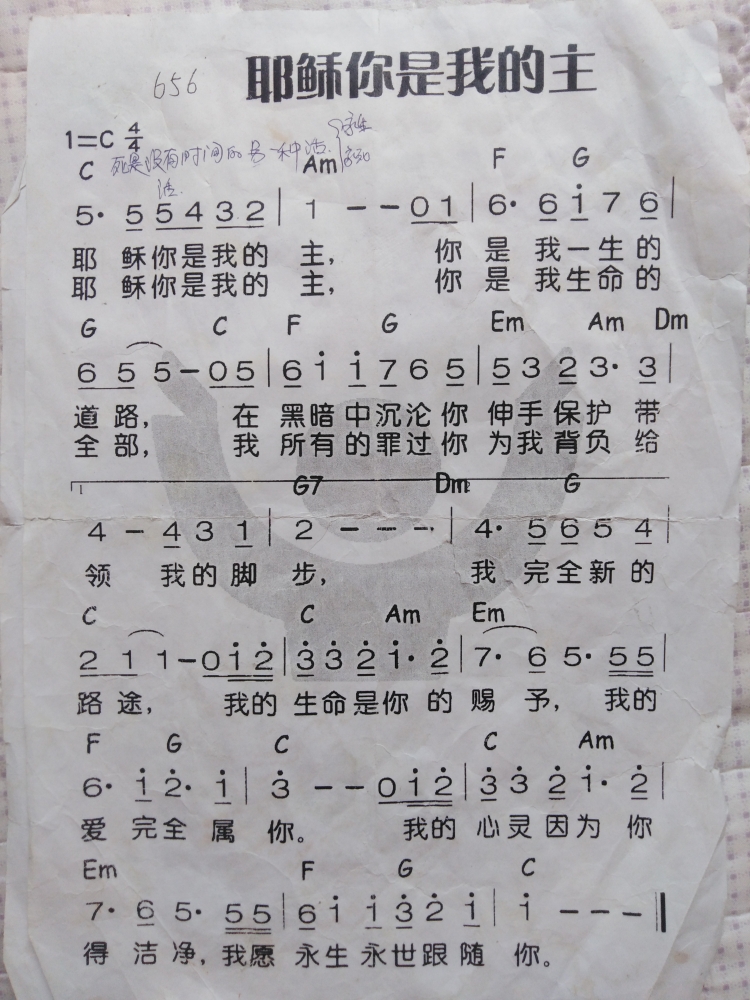 656 耶稣你是我的主
1=C 4/4
死是没有时间的另一种活
法.
C Am F G
5· 5 5 4 3 2 | 1 - - 0 1 | 6· 6 i 7 6 |
耶 稣你是我的 主, 你 是 我一生的
耶 稣你是我的 主, 你 是 我生命的
G C F G Em Am Dm
6 5 5 - 0 5 | 6 i i 7 6 5 | 5 3 2 3· 3 |
道路, 在 黑暗中沉沦你 伸手保护 带
全部, 我 所有的罪过你 为我背负 给
1 G7 Dm G
4 - 4 3 1 | 2 - - - | 4· 5 6 5 4 |
领 我的脚 步, 我 完全新的
C C Am Em
2 1 1 - 0 i 2̇ | 3̇ 3̇ 2̇ i· 2̇ | 7· 6 5· 5 5 |
路途, 我的 生命是你 的 赐 予, 我的
F G C C Am
6· i 2̇· i | 3̇ - - 0 i 2̇ | 3̇ 3̇ 2̇ i· 2̇ |
爱 完全 属 你。 我的 心灵因为 你
Em F G C
7· 6 5· 5 5 | 6 i i 3̇ 2̇ i | i - - - ‖
得 洁 净, 我愿 永生永世跟随 你。